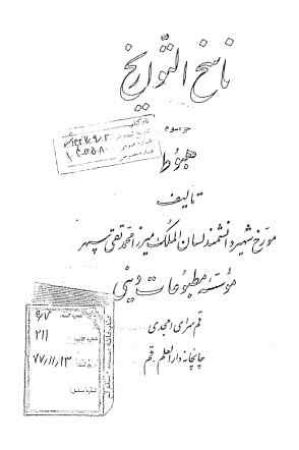 ناسخ التواریخ
جزء سوم
هبوط
تألیف
مورخ شهیر دانشمند لسان الملک میرزا محمد تقی سپهر
مؤسسه مطبوعات دینی
قم سرای امجدی
چاپخانه دارالعلم، قم
۹/۷
۲۱۱
۷۷/۱۱/۱۳